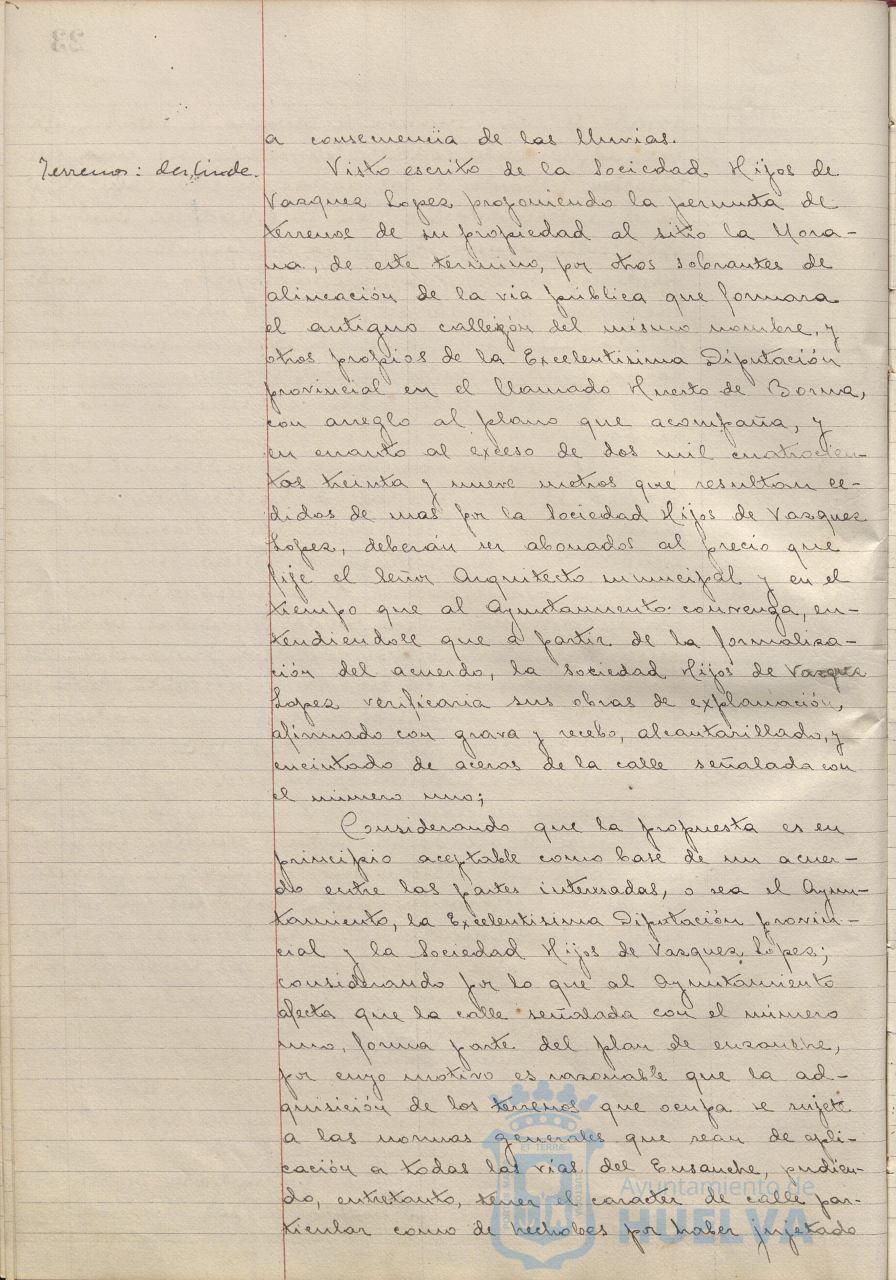 a consecuencia de las lluvias.
Terrenos: deslinde.
Visto escrito de la Sociedad Hijos de
Vazquez Lopez proponiendo la permuta de
terrenos de su propiedad al sitio la Mora-
na, de este termino, por otros sobrantes de
alineación de la via pública que formara
el antiguo callejón del mismo nombre, y
otros propios de la Excelentisima Diputación
provincial en el llamado Huerto de Borma,
con arreglo al plano que acompaña, y
en cuanto al exceso de dos mil cuatrocien-
tos treinta y nueve metros que resultan ce-
didos de mas por la Sociedad Hijos de Vazquez
Lopez, deberán ser abonados al precio que
fije el Señor Arquitecto municipal y en el
tiempo que al Ayuntamiento convenga, en-
tendiendose que a partir de la formaliza-
ción del acuerdo, la Sociedad Hijos de Vazquez
Lopez verificaria sus obras de explanación,
afirmado con grava y recebo, alcantarillado, y
encintado de aceras de la calle señalada con
el número uno;
Considerando que la propuesta es en
principio aceptable como base de un acuer-
do entre las partes interesadas, o sea el Ayun-
tamiento, la Excelentisima Diputación provin-
cial y la Sociedad Hijos de Vazquez López;
considerando por lo que al Ayuntamiento
afecta que la calle señalada con el número
uno, forma parte del plan de ensanche,
por cuyo motivo es razonable que la ad-
quisición de los terrenos que ocupa se sujete
a las normas generales que sean de apli-
cación a todas las vias del Ensanche, pudien-
do, entretanto, tener el caracter de calle par-
ticular como de hecho es por haber
Ayuntamiento de
HUELVA